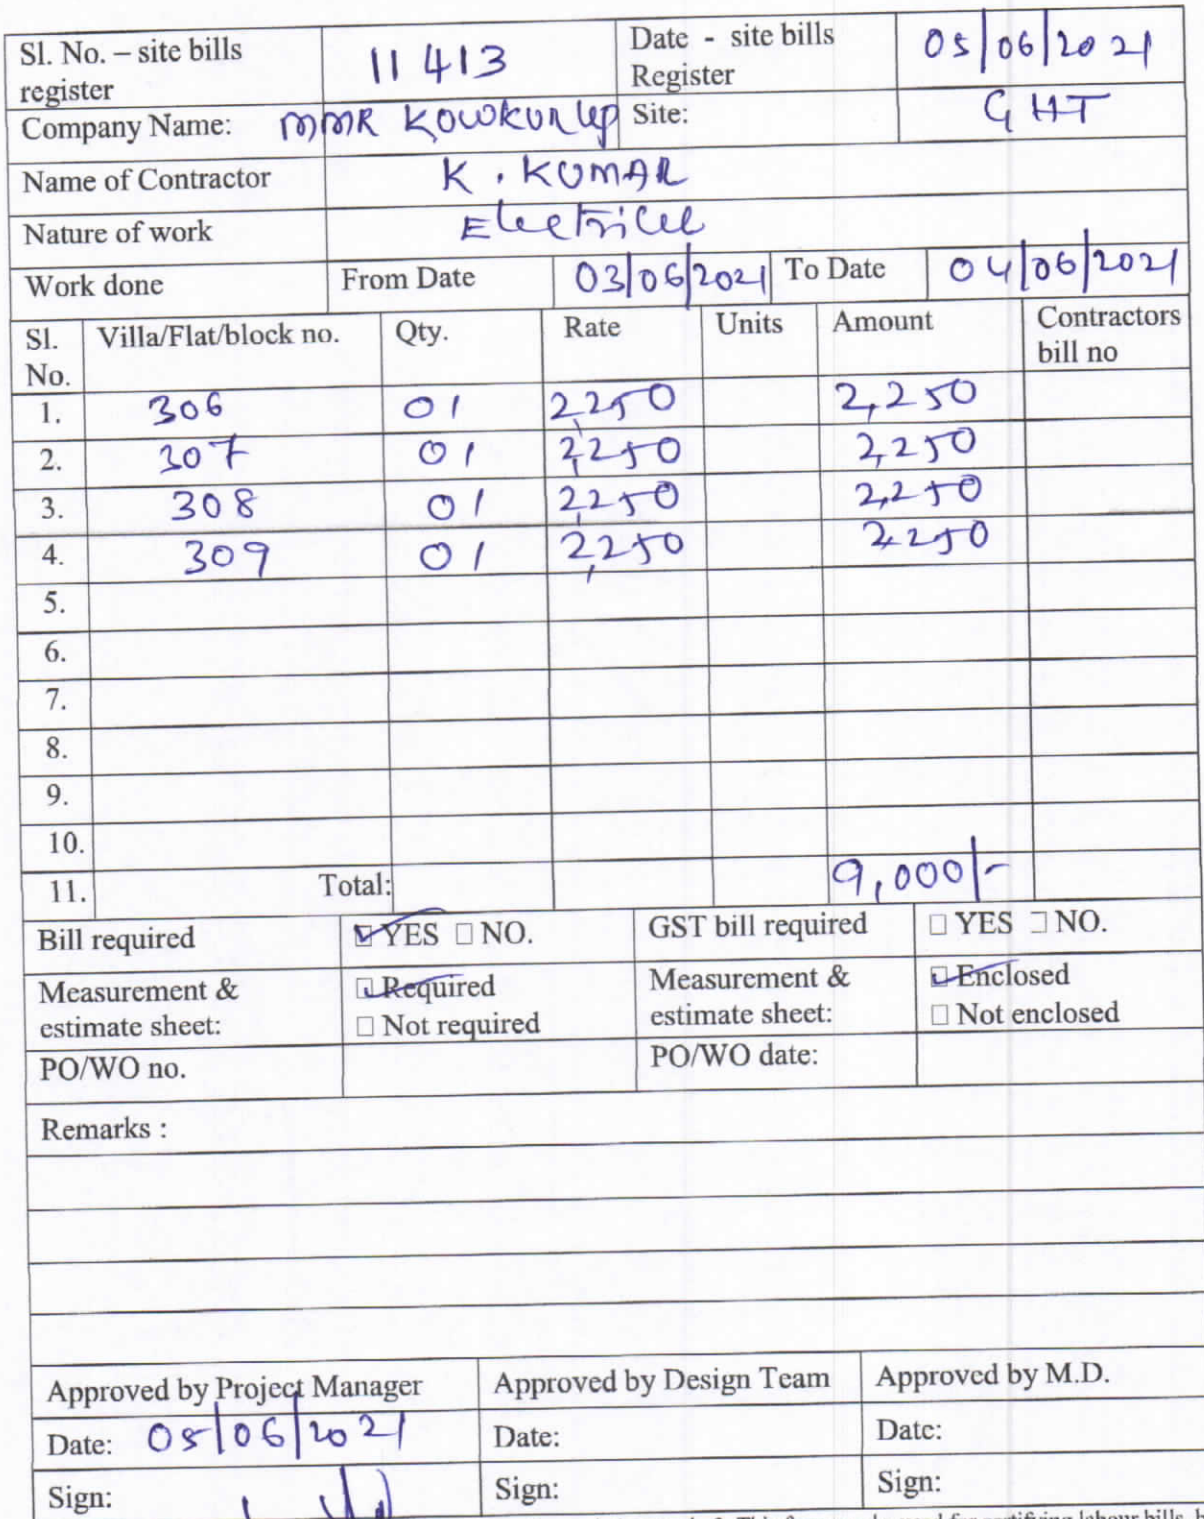 Sl. No. – site bills register 11413 Date - site bills Register 05/06/2021
Company Name: MMR KOWKUR LLP Site: GHT
Name of Contractor K. KUMAR
Nature of work Electrical
Work done From Date 03/06/2021 To Date 04/06/2021
Sl. No. Villa/Flat/block no. Qty. Rate Units Amount Contractors bill no
1. 306 01 2,250 2,250
2. 307 01 2,250 2,250
3. 308 01 2,250 2,250
4. 309 01 2,250 2,250
5.
6.
7.
8.
9.
10.
11. Total: 9,000/-
Bill required ☑ YES □ NO. GST bill required □ YES □ NO.
Measurement & estimate sheet: ☑ Required □ Not required Measurement & estimate sheet: ☑ Enclosed □ Not enclosed
PO/WO no. PO/WO date:
Remarks :
Approved by Project Manager Approved by Design Team Approved by M.D.
Date: 05/06/2021 Date: Date:
Sign: Sign: Sign: